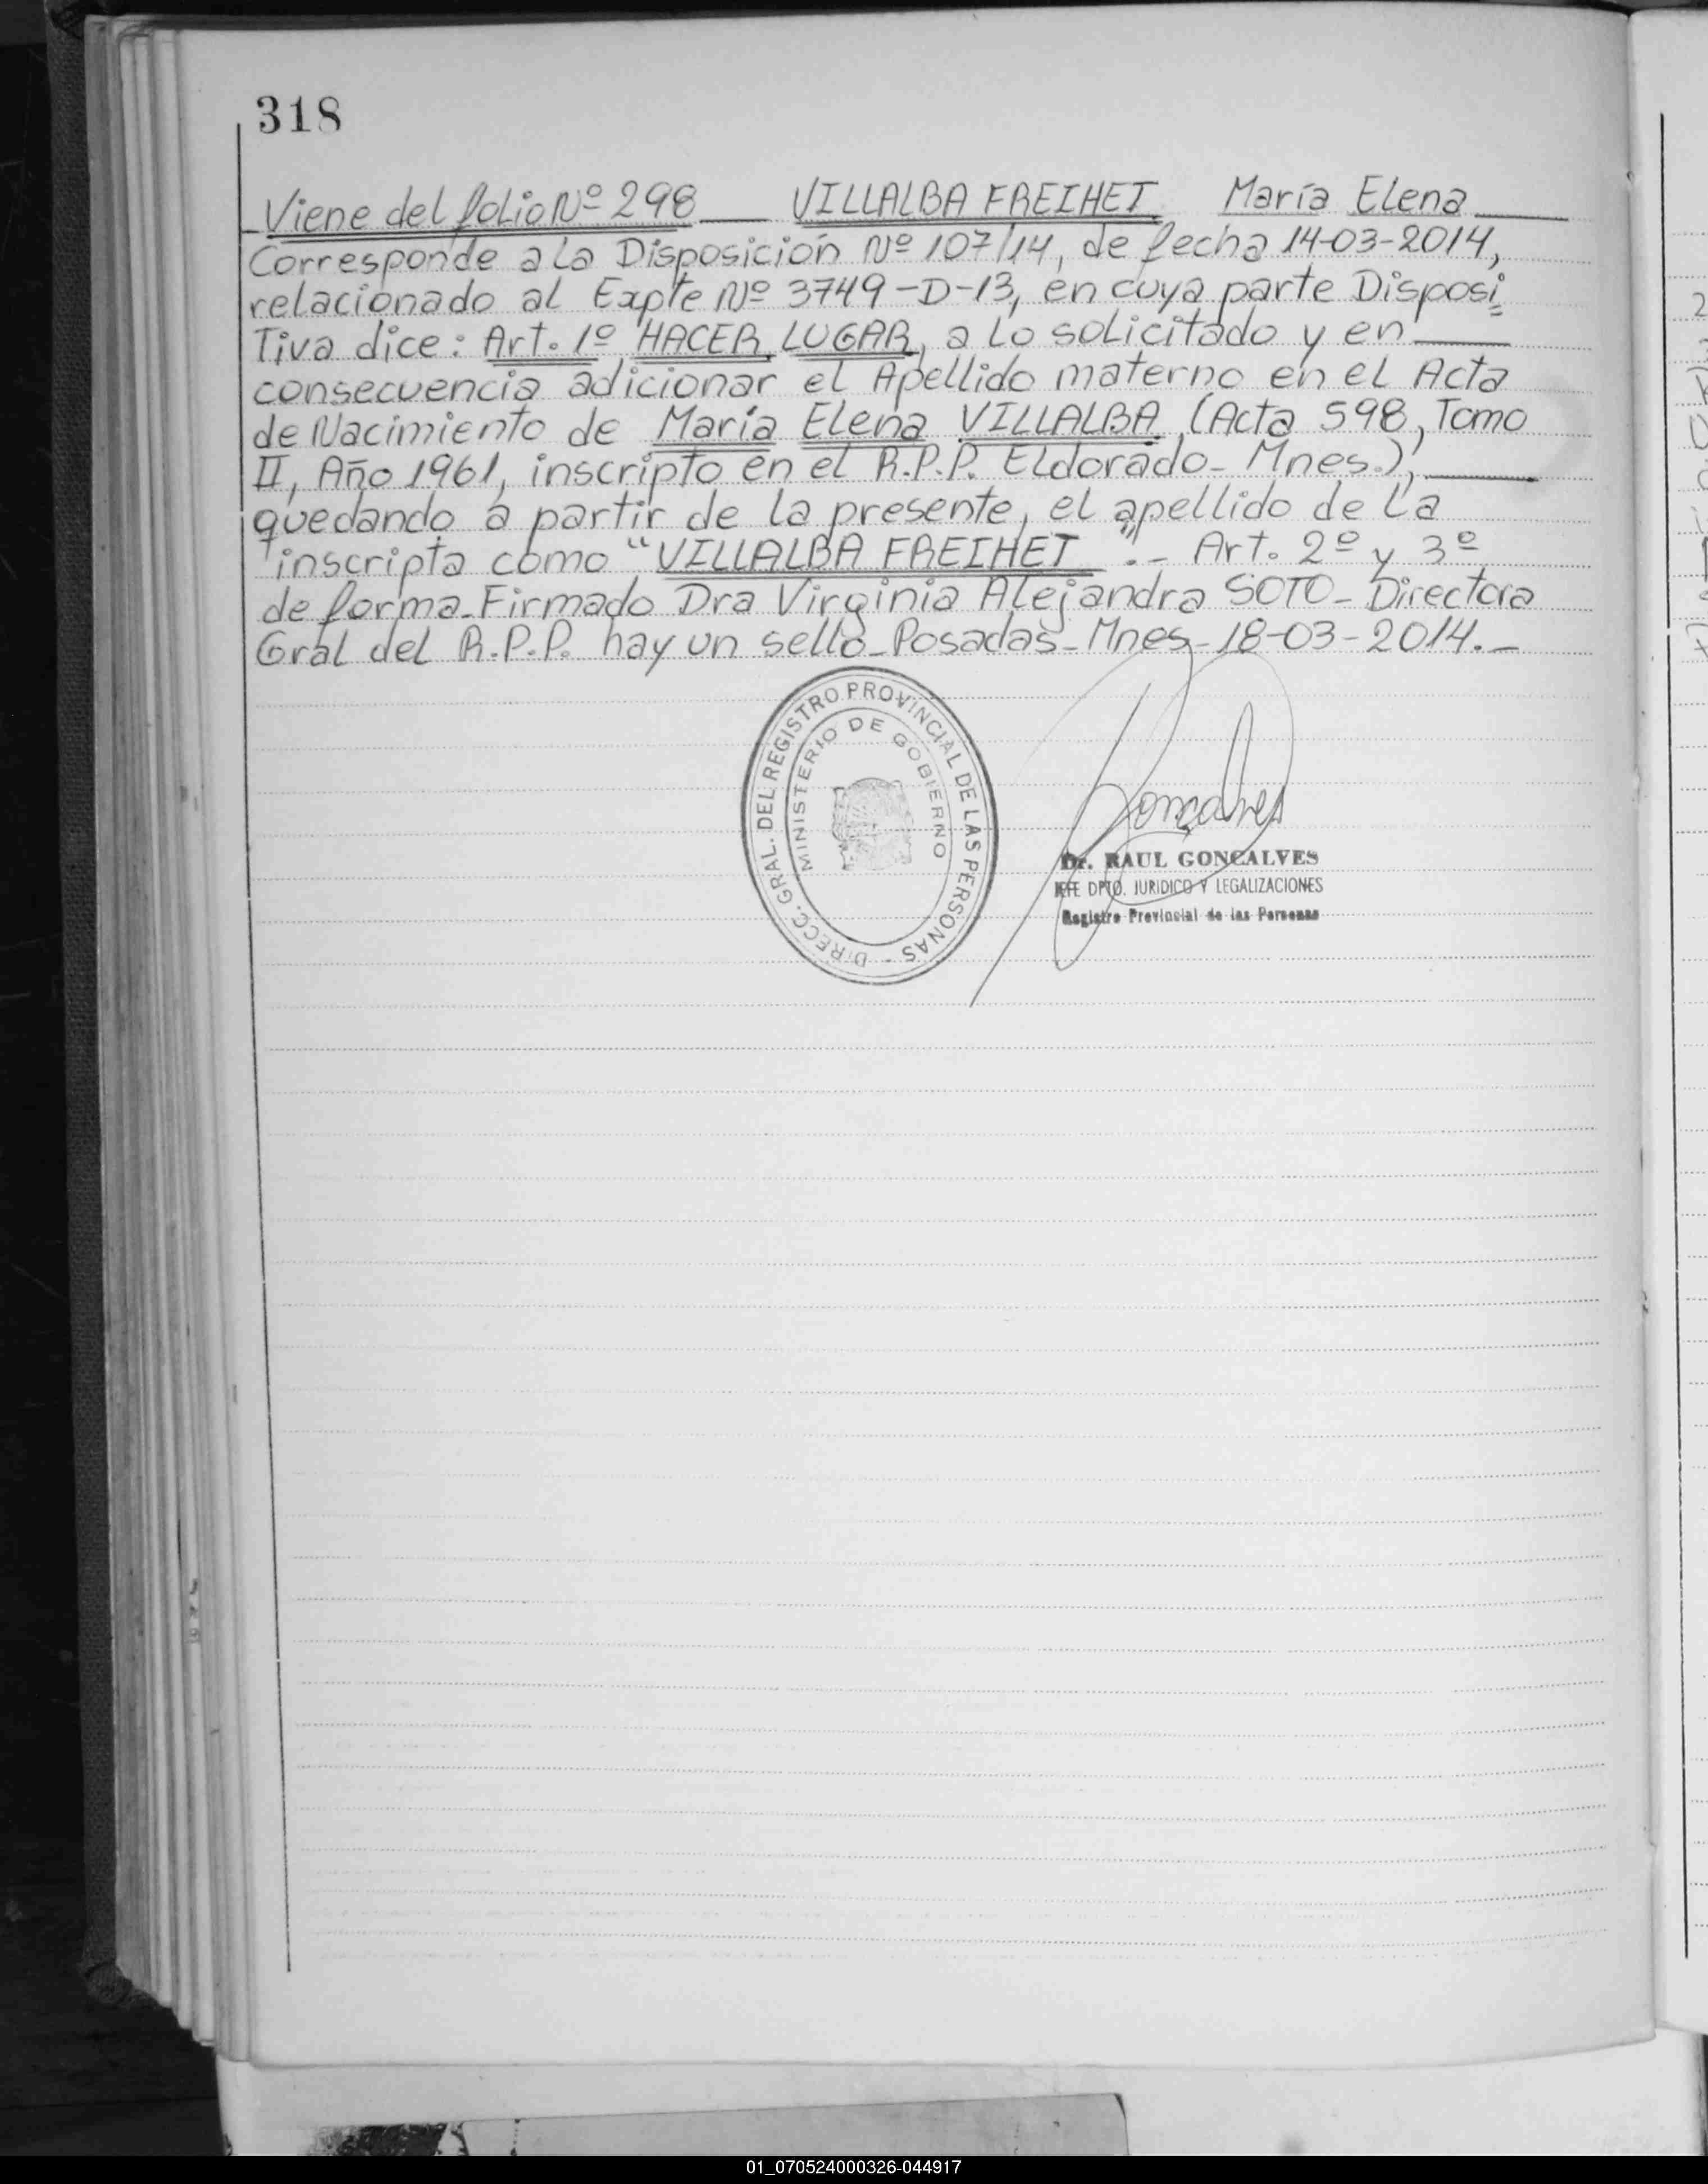 318
Viene del folio Nº 298 VILLALBA FREIHET María Elena
Corresponde a la Disposición Nº 107/14, de fecha 14-03-2014,
relacionado al Expte Nº 3749-D-13, en cuya parte Disposi
Tiva dice: Art. 1º HACER LUGAR, a lo solicitado y en
consecuencia adicionar el Apellido materno en el Acta
de Nacimiento de María Elena VILLALBA (Acta 598, Tomo
II, Año 1961, inscripto en el R.P.P. Eldorado- Mnes.),
quedando a partir de la presente, el apellido de la
inscripta como "VILLALBA FREIHET".- Art. 2º y 3º
de forma-Firmado Dra Virginia Alejandra SOTO- Directora
Gral del R.P.P. hay un sello-Posadas-Mnes-18-03-2014.-
DIRECC. GRAL. DEL REGISTRO PROVINCIAL DE LAS PERSONAS -
MINISTERIO DE GOBIERNO
Goncalves
Dr. RAUL GONCALVES
JEFE DPTO. JURIDICO Y LEGALIZACIONES
Registro Provincial de las Personas
01_070524000326-044917